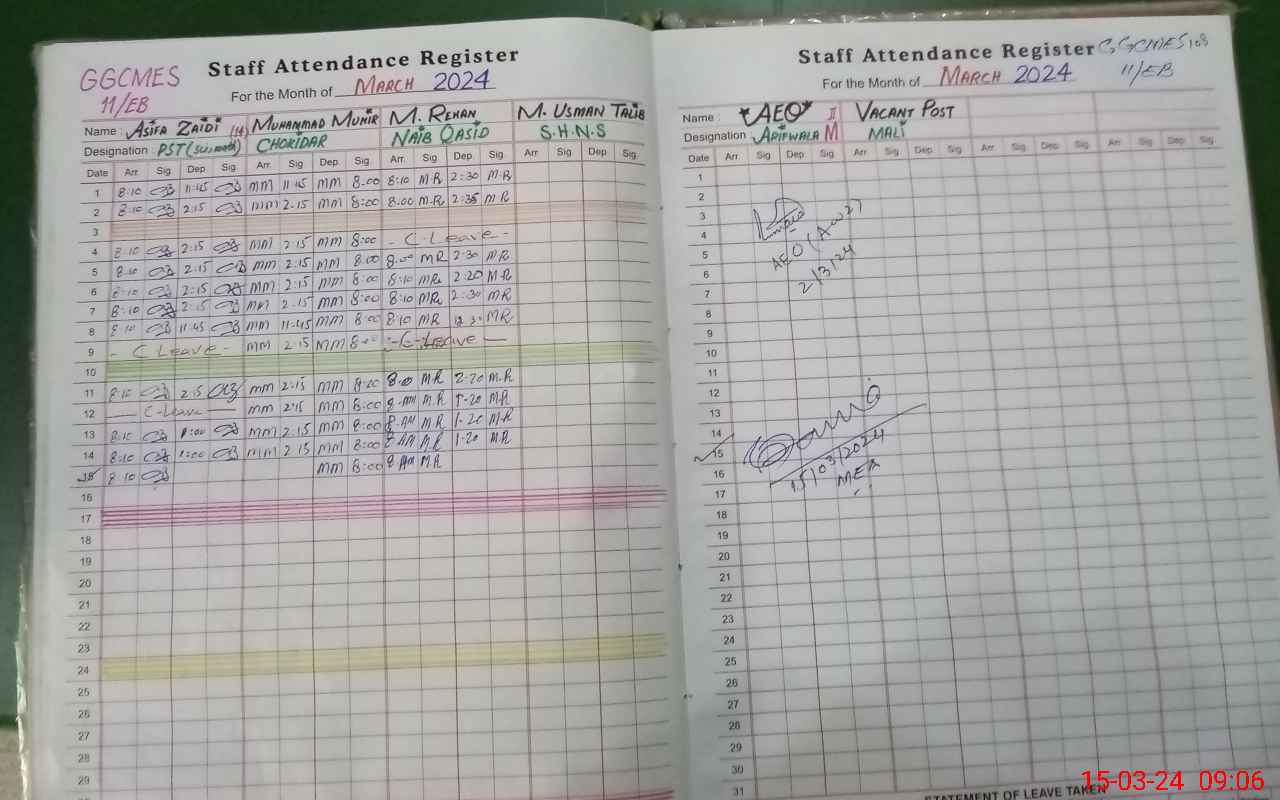 GGCMES
11/EB
Staff Attendance Register
For the Month of MARCH 2024
Name : ASIFA ZAIDI (14) MUHAMMAD MUNIR M. REHAN M. USMAN TALIB
Designation : PST CHOKIDAR NAIB QASID S.H.N.S
Date Arr. Sig Dep Sig Arr. Sig Dep Sig Arr. Sig Dep. Sig. Arr. Sig Dep Sig.
1 8:10 11:45 mm 11:45 mm 8:00 8:10 M.R 2:30 M.R
2 8:10 2:15 mm 2:15 mm 8:00 8:00 M.R 2:35 M R
3
4 8:10 2:15 mm 2:15 mm 8:00 - C-Leave -
5 8:10 2:15 mm 2:15 mm 8:00 8:00 MR 2:30 MR
6 8:10 2:15 mm 2:15 mm 8:00 8:10 MR 2:20 M.R
7 8:10 2:15 mm 2:15 mm 8:00 8:10 MR 2:30 MR
8 8:10 11:45 mm 11:45 mm 8:00 8:10 MR MR
9 - C Leave - mm 2:15 mm 8:00 - C-Leave -
10
11 8:10 2:15 mm 2:15 mm 8:00 8:00 M.R 2-20 M.R
12 C-Leave mm 2:15 mm 8:00 M.R 1-20 M.R
13 8:10 1:00 mm 2:15 mm 8:00 8-AM M.R 1-20 M.R
14 8:10 1:00 mm 2:15 mm 8:00 8 AM M.R 1-20 M.R
15 8:10 mm 8:00 8 AM M.R
16
17
18
19
20
21
22
23
24
25
26
27
28
29
Staff Attendance Register GGCMES
11/EB
For the Month of MARCH 2024
Name : *AEO* II VACANT POST
Designation : ARIFWALA M MALI
Date Arr. Sig Dep Sig Arr. Sig Dep Sig. Arr. Sig Dep Sig Arr. Sig Dep Sig.
1
2
3
4
AEO
5
6
2/3/24
7
8
9
10
11
12
13
14
15
15/03/2024
16
MEA
17
18
19
20
21
22
23
24
25
26
27
28
29
30
31
STATEMENT OF LEAVE TAKEN
15-03-24 09:06